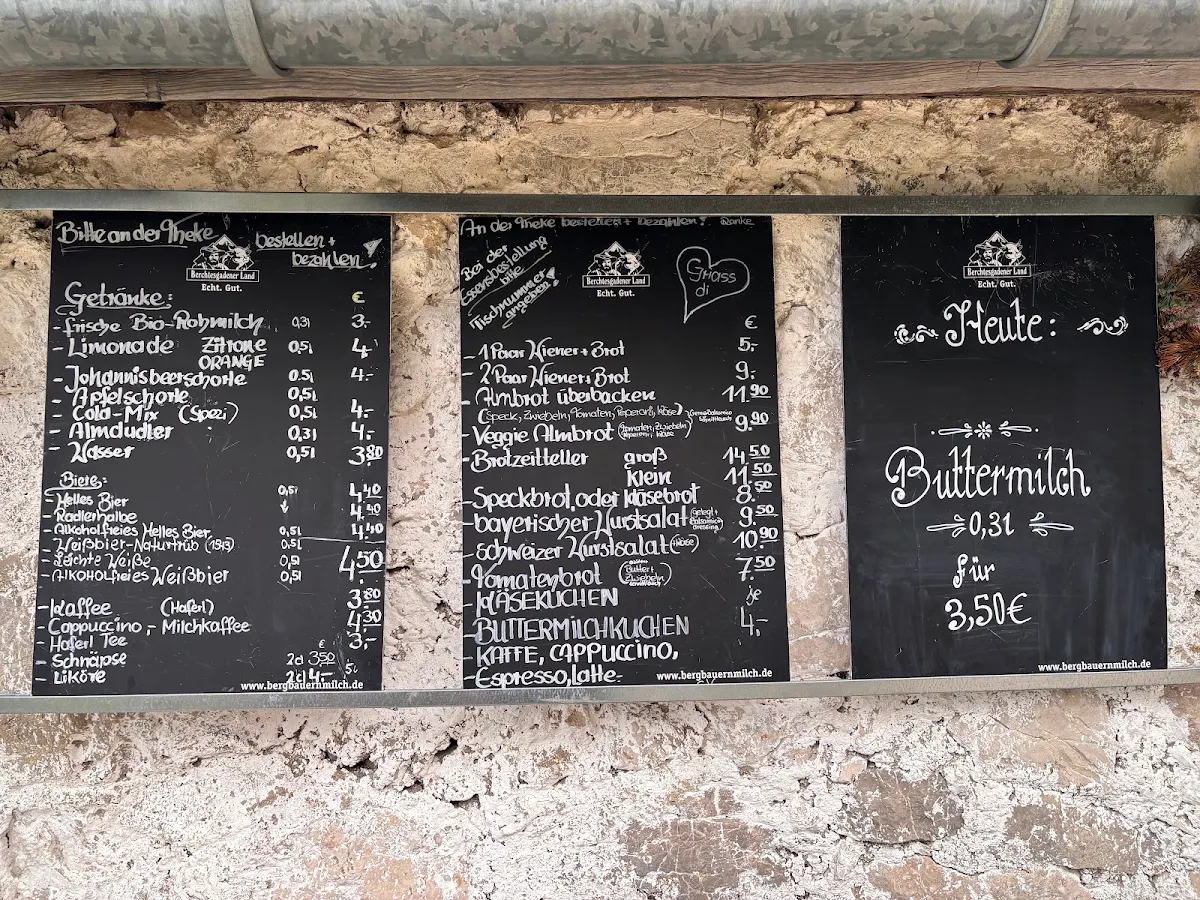 Bitte an der Theke bestellen +
bezahlen!
Berchtesgadener Land
Echt. Gut.
Getränke: €
- frische Bio-Rohmilch 0,3l 3.-
- Limonade Zitrone 0,5l 4.-
ORANGE
- Johannisbeerschorle 0.5l 4.-
- Apfelschorle 0,5l
- Cola-Mix (Spezi) 0,5l 4.-
- Almdudler 0,3l 4.-
- Wasser 0,5l 3,80
Biere:
- Helles Bier 0,5l 4,40
- Radlerhalbe 4,40
- Alkoholfreies Helles Bier 0,5l 4,40
- Weißbier-Naturtrüb 0,5l
- Leichte Weiße 0,5l 4,50
- ALKOHOLfreies Weißbier 0,5l
- Kaffee (Haferl) 3,80
- Cappuccino, - Milchkaffee 4,30
- Haferl Tee 3,-
- Schnäpse 2cl 3,50 €
- Liköre 2cl 4,-
www.bergbauernmilch.de
An der Theke bestellen + bezahlen! Danke
Bei der
Essensbestellung
bitte
Tischnummer
angeben!
Berchtesgadener Land
Echt. Gut.
Griass
di
€
- 1 Paar Wiener + Brot 5,-
- 2 Paar Wiener + Brot 9.-
- Almbrot überbacken 11,90
(Speck, Zwiebeln, Tomaten, Peperoni, Käse)
- Veggie Almbrot (Tomaten, Zwiebeln 9,90
Peperoni, Käse)
- Brotzeitteller groß 14,50
klein 11,50
- Speckbrot, oder Käsebrot 8,50
- bayerischer Wurstsalat 9,50
- schweizer Wurstsalat (+Käse) 10,90
- Tomatenbrot 7,50
Butter +
Zwiebeln
- KÄSEKUCHEN je
- BUTTERMILCHKUCHEN 4,-
- KAFFE, CAPPUCCINO,
- Espresso, latte-
www.bergbauernmilch.de
Berchtesgadener Land
Echt. Gut.
Heute:
Buttermilch
0,3l
für
3,50€
www.bergbauernmilch.de